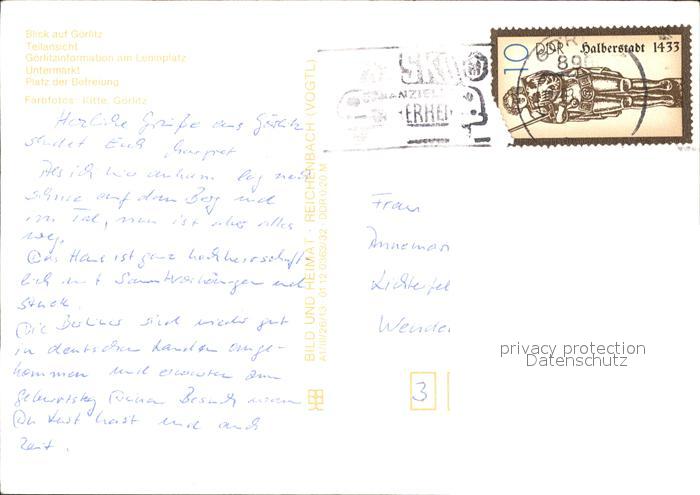 Blick auf Görlitz
Teilansicht
Görlitzinformation am Leninplatz
Untermarkt
Platz der Befreiung
Farbfotos: Kitte, Görlitz
Herzliche Grüße aus Görlitz
sendet Euch Margret
Als ich hier ankam lag noch
Schnee auf dem Berg und
im Tal, nun ist aber alles
weg.
Das Haus ist ganz hochherrschaft-
lich mit Samtvorhängen und
Stuck.
Die sind wieder gut
in deutschen Landen ange-
kommen und erwarten zum
Geburtstag Deinen Besuch wenn
Du Lust hast und auch
Zeit.
BILD UND HEIMAT · REICHENBACH (VOGTL)
A1/III/26/13 01 12 0363/32 DDR 0,20 M
SKO
FINANZIELLE
10 DDR Halberstadt 1433
Frau
Annemar
Lichterfel
Wende
3
privacy protection
Datenschutz